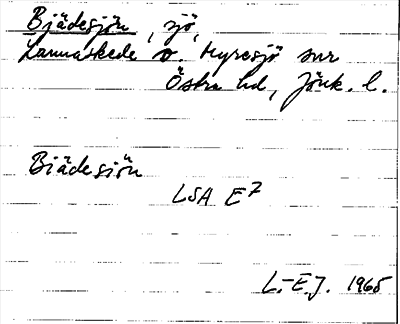 Bjädesjön, sjö,
Lannaskede o. Myresjö snr
Östra hd, Jönk. l.
Biädesiön
LSA E7
L.-E.J. 1965